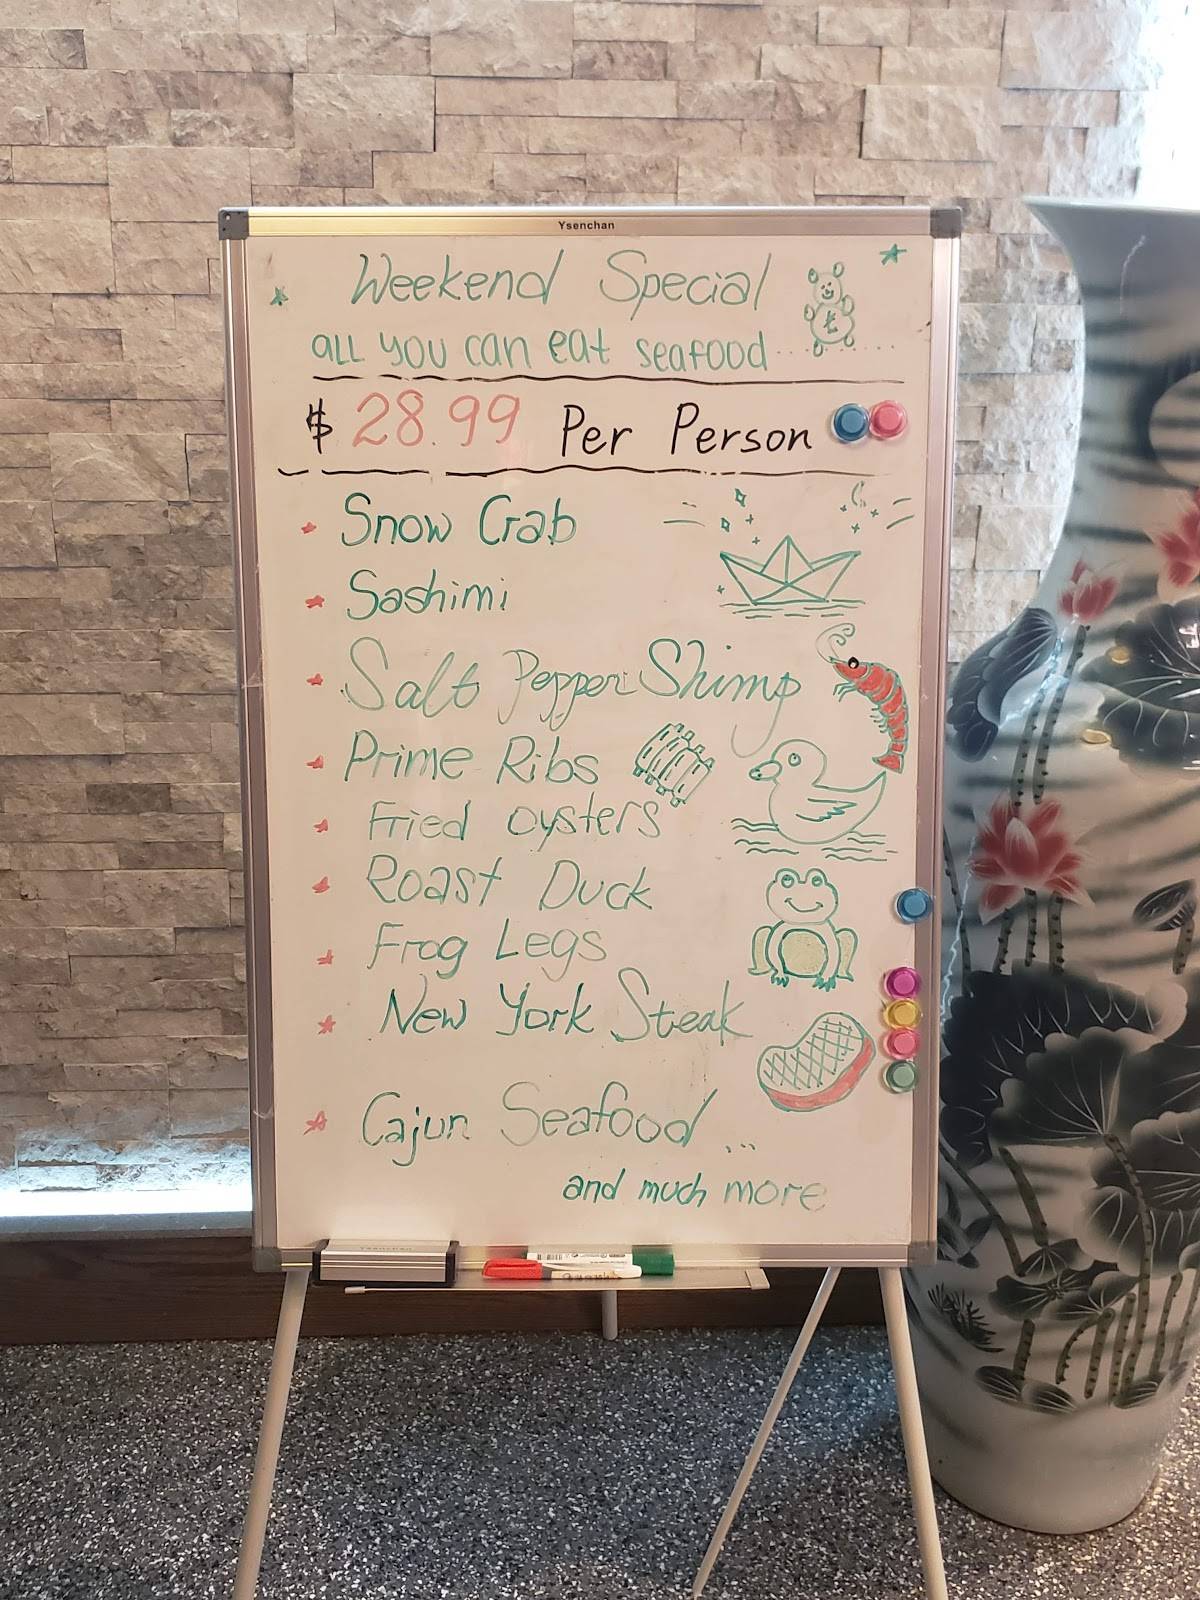 Ysenchan
Weekend Special
all you can eat seafood..........
$28.99 Per Person
Snow Crab
Sashimi
Salt Pepper Shimp
Prime Ribs
Fried oysters
Roast Duck
Frog Legs
New York Steak
Cajun Seafood ...
and much more
Ysenchan